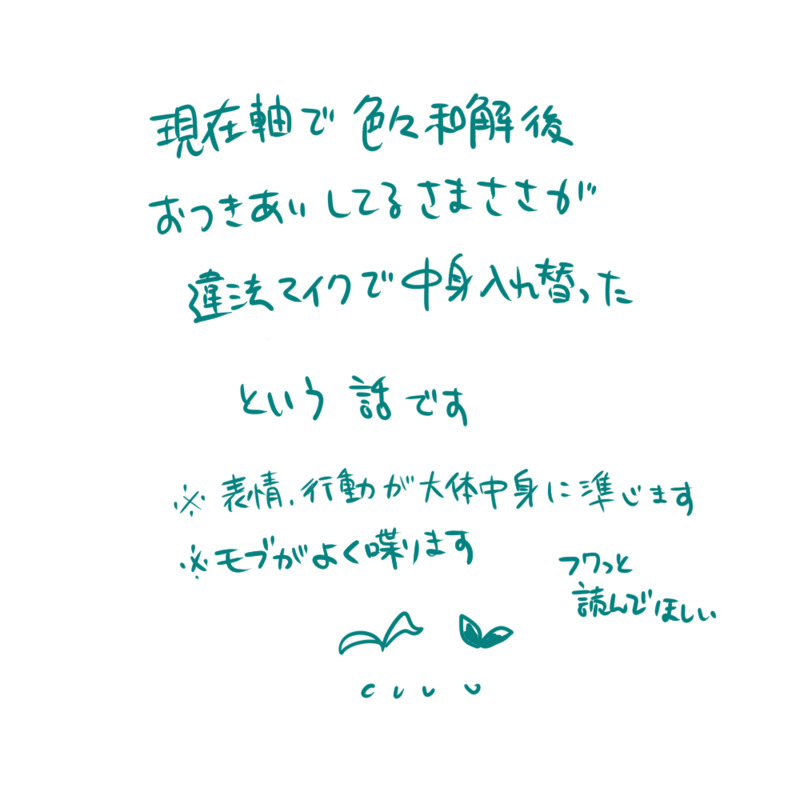 現在軸で色々和解後
おつきあいしてるさまささが
違法マイクで中身入れ替った
という話です
※表情、行動が大体中身に準じます
※モブがよく喋ります
フワっと
読んでほしい